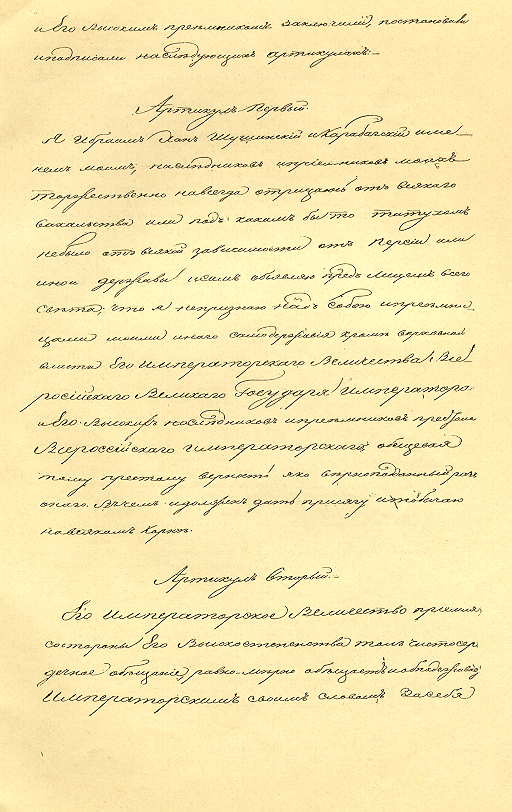 и Его Высокимъ преемникомъ заключили, постановили
и подписали на слѣдующихъ артикулахъ.
Артикулъ Первый.
Я Ибраимъ Ханъ Шушинскій и Карабагскій име
немъ моимъ, наслѣдниковъ и преемниковъ моихъ
торжественно навсегда отрицаюсь отъ всякаго
васальства или подъ какимъ бы то титуломъ
не было отъ всякой зависимости отъ Персіи или
иной державы и симъ объявляю предъ лицемъ всего
свѣта, что я не признаю надъ собою и преемни
цами моими инаго самодержавія кромѣ верховной
власти Его Императорскаго Величества Все
россійскаго Великаго Государя Императора
и Его Высокихъ наслѣдниковъ и преемниковъ престола
Всероссійскаго императорскаго, обѣщевая
тому престолу вѣрность яко вѣрноподданный рабъ
онаго. Въ чемъ и долженъ дать присягу по обычаю
на святомъ Коранѣ.
Артикулъ Вторый.
Его Императорское Величество пріемля
со стороны Его Высокостепенства толь чистосер
дечное обѣщаніе, равномѣрно обѣщаетъ и обнадеживаетъ
Императорскимъ своимъ словомъ за себя